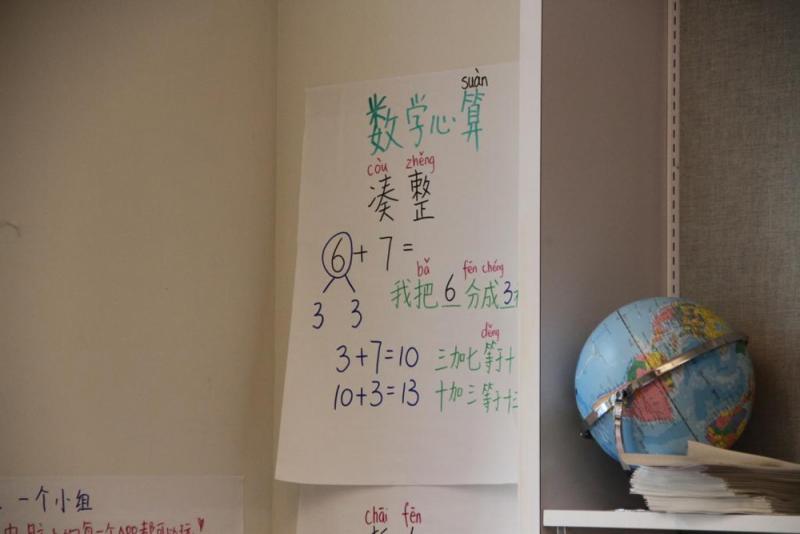 suàn
数学心算
còu zhěng
凑整
6 + 7 =
bǎ fēn chéng
我把 6 分成 3
3 3
děng
3+7=10 三加七等于十
10+3=13 十加三等于十三
一个小组
chāi fēn